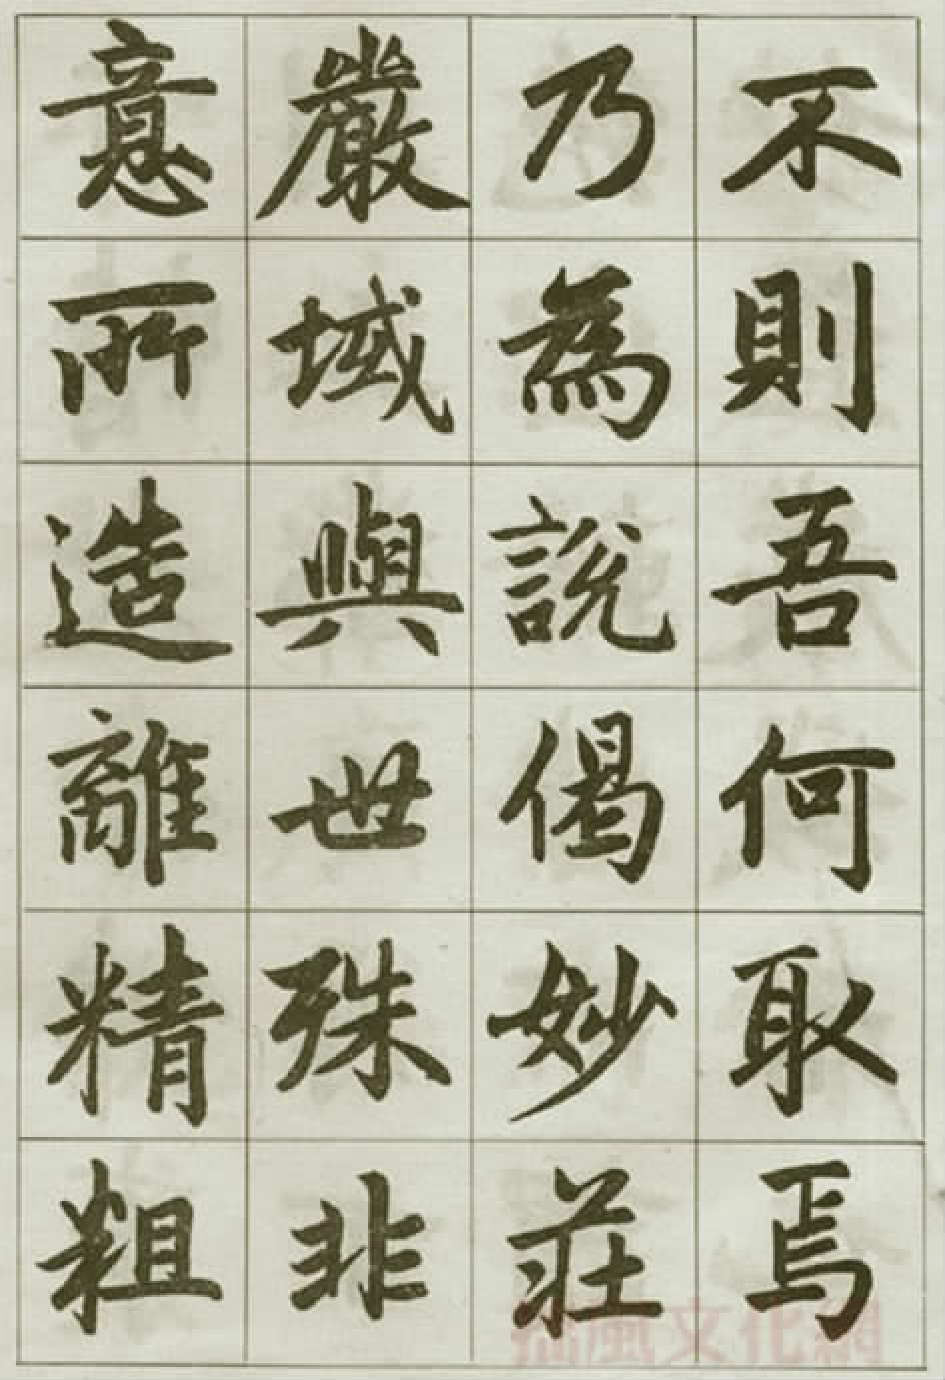 不則吾何取焉
乃為說偈妙莊
嚴域與世殊非
意所造離精粗
文化網